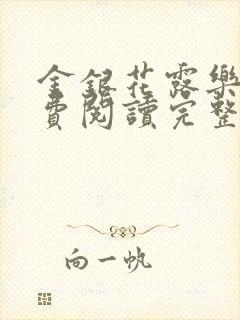 金銀花露樂
費閱讀完整
向一帆